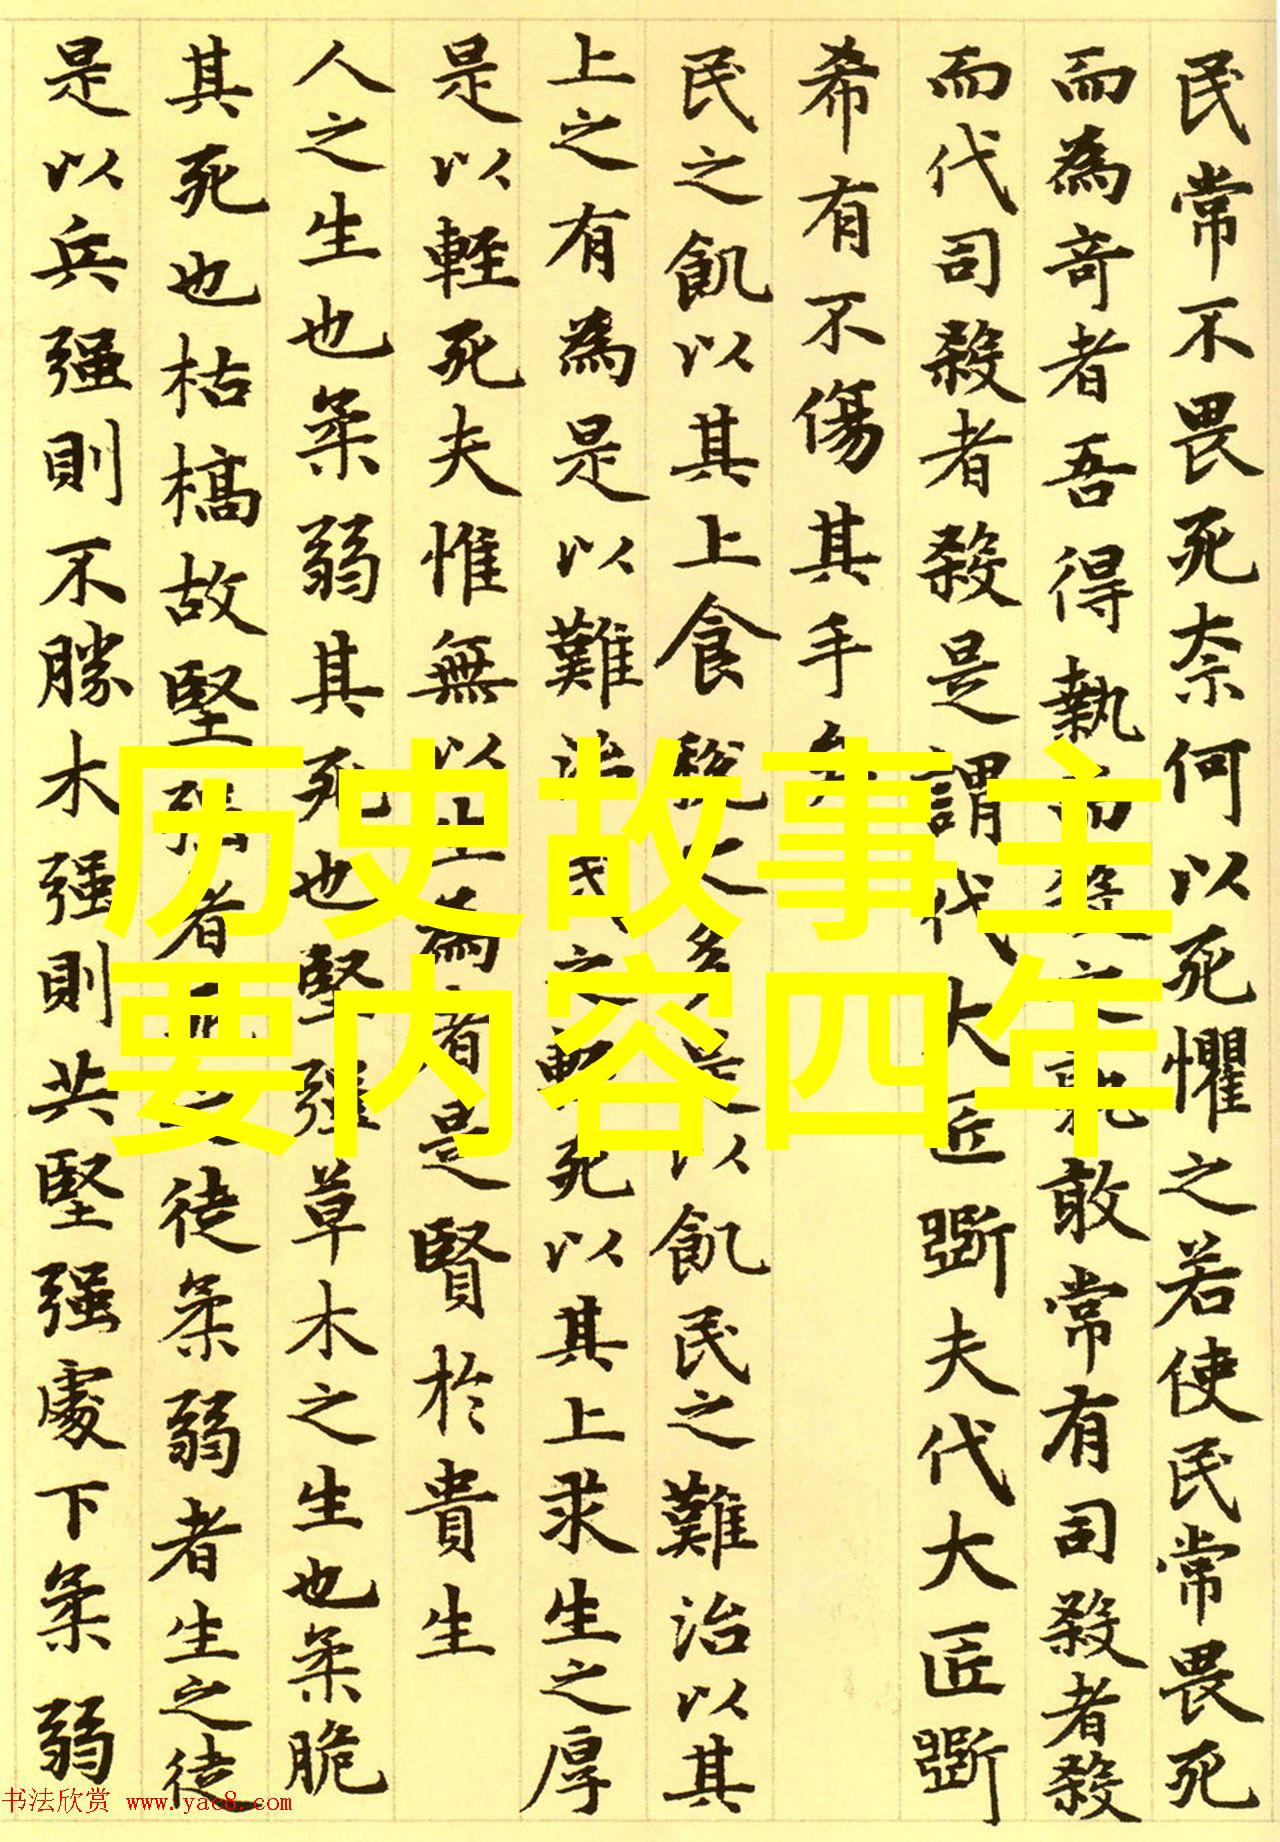 民常不畏死奈何以死懼之若使民常畏死
而為奇者吾得執而殺之孰敢常有司殺者殺
而代司殺者殺是謂代大匠斲夫代大匠斲
希有不傷其手矣
民之飢以其上食稅之多是以飢民之難治以其
上之有為是以難治民之輕死以其上求生之厚
是以輕死夫惟無以生為者是賢於貴生
人之生也柔弱其死也堅强草木之生也柔脆
其死也枯槁故堅强者死之徒柔弱者生之徒
是以兵强則不勝木强則共堅强處下柔弱
历史故事主
要内容四年
书法欣赏 www.yac8.com